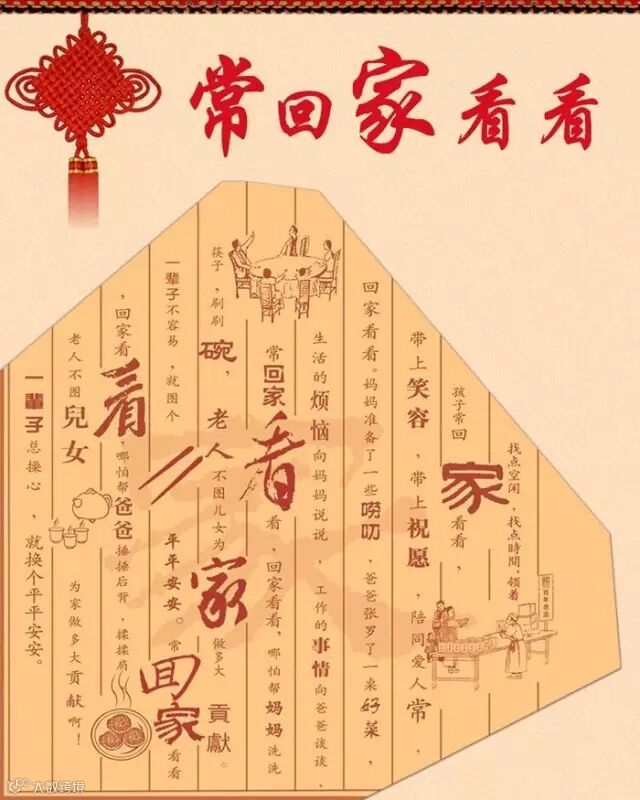 常回家看看
找点空闲，找点時間，领着
孩子常回家看看，
带上笑容，带上祝愿，陪同爱人常，
回家看看。妈妈准备了一些唠叨，爸爸张罗了一桌好菜，
生活的烦恼向妈妈说说，工作的事情向爸爸谈谈，
常回家看看，回家看看，哪怕帮妈妈洗洗
筷子，刷刷碗，老人不图儿女为家做多大貢獻。
一辈子不容易，就图个平平安安。常回家看看
，回家看看，哪怕帮爸爸捶捶后背，揉揉肩
老人不图兒女为家做多大贡献啊！
一辈子总操心，就换个平平安安。
大数跨境